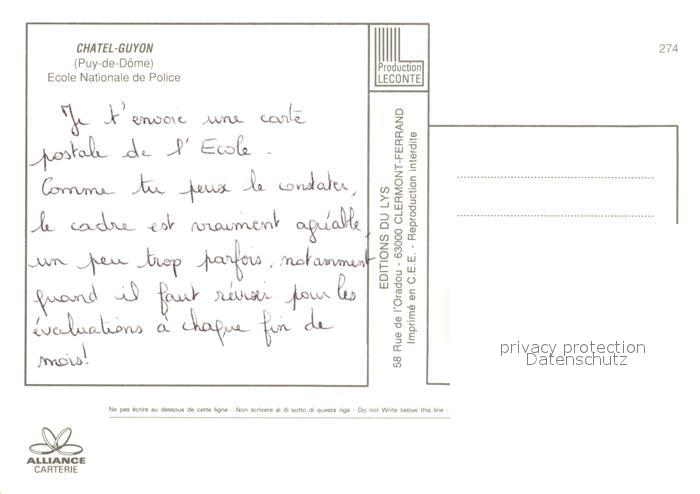 CHATEL-GUYON
(Puy-de-Dôme)
Ecole Nationale de Police
Je t'envoie une carte
postale de l'Ecole.
Comme tu peux le constater,
le cadre est vraiment agréable,
un peu trop parfois, notamment
quand il faut réviser pour les
évaluations à chaque fin de
mois!
Production
LECONTE
EDITIONS DU LYS
58 Rue de l'Oradou - 63000 CLERMONT-FERRAND
Imprimé en C.E.E. - Reproduction interdite
274
privacy protection
Datenschutz
Ne pas écrire au dessous de cette ligne - Non scrivere al di sotto di questa riga - Do not Write below this line -
ALLIANCE
CARTERIE